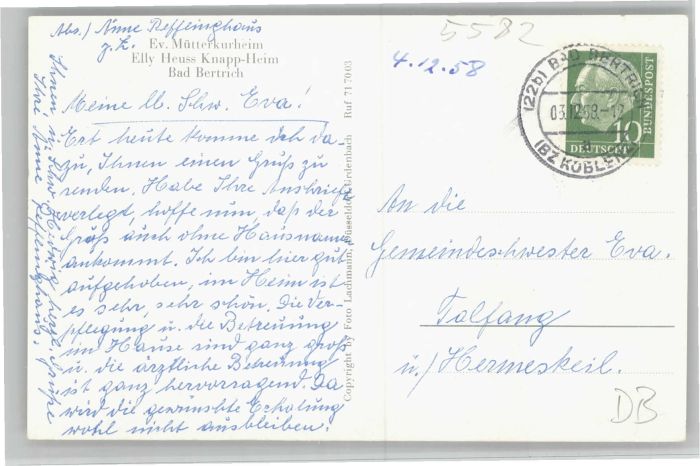 Abs./ Änne Refflinghaus
z. Z.
Ev. Mütterkurheim
Elly Heuss Knapp-Heim
Bad Bertrich
Meine lb. Schw. Eva!
Erst heute komme ich da-
zu, Ihnen einen Gruß zu
senden. Habe Ihre Anschrift
verlegt, hoffe nun, daß der
Gruß auch ohne Hausname
ankommt. Ich bin hier gut
aufgehoben, im Heim ist
es sehr, sehr schön. Die Ver-
pflegung u. die Betreuung
im Hause sind ganz groß
u. die ärztliche Betreuung
ist ganz hervorragend. Da
wird die gewünschte Erholung
wohl nicht ausbleiben.
Ihnen u. Schw. herzl. Grüße
Ihre Änne Refflinghaus.
Copyright by Foto Lachmann, Düsseldorf-Urdenbach Ruf 717003
5582
4.12.58
(22b) BAD BERTRICH
03.12.58.-17
(BZ KOBLENZ)
10
DEUTSCHE
BUNDESPOST
An die
Gemeindeschwester Eva.
Talfang
ü./ Hermeskeil.
DB